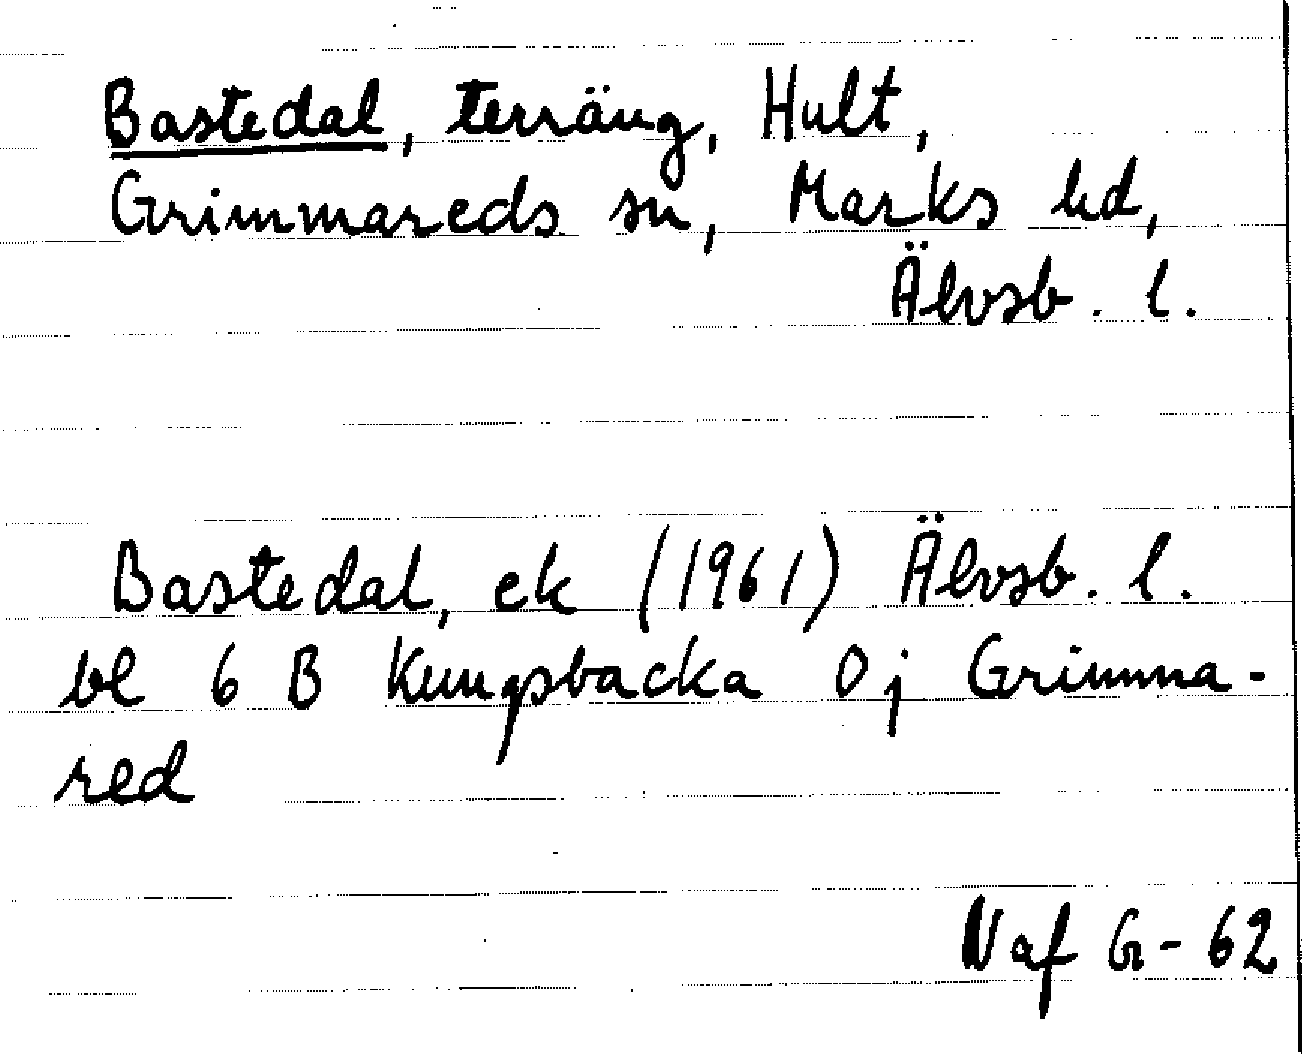 Bastedal, terräng, Hult,
Grimmareds sn, Marks hd,
Älvsb. l.
Bastedal, ek (1961) Älvsb. l.
bl 6 B Kungsbacka 0 j Grimma-
red
Naf G-62